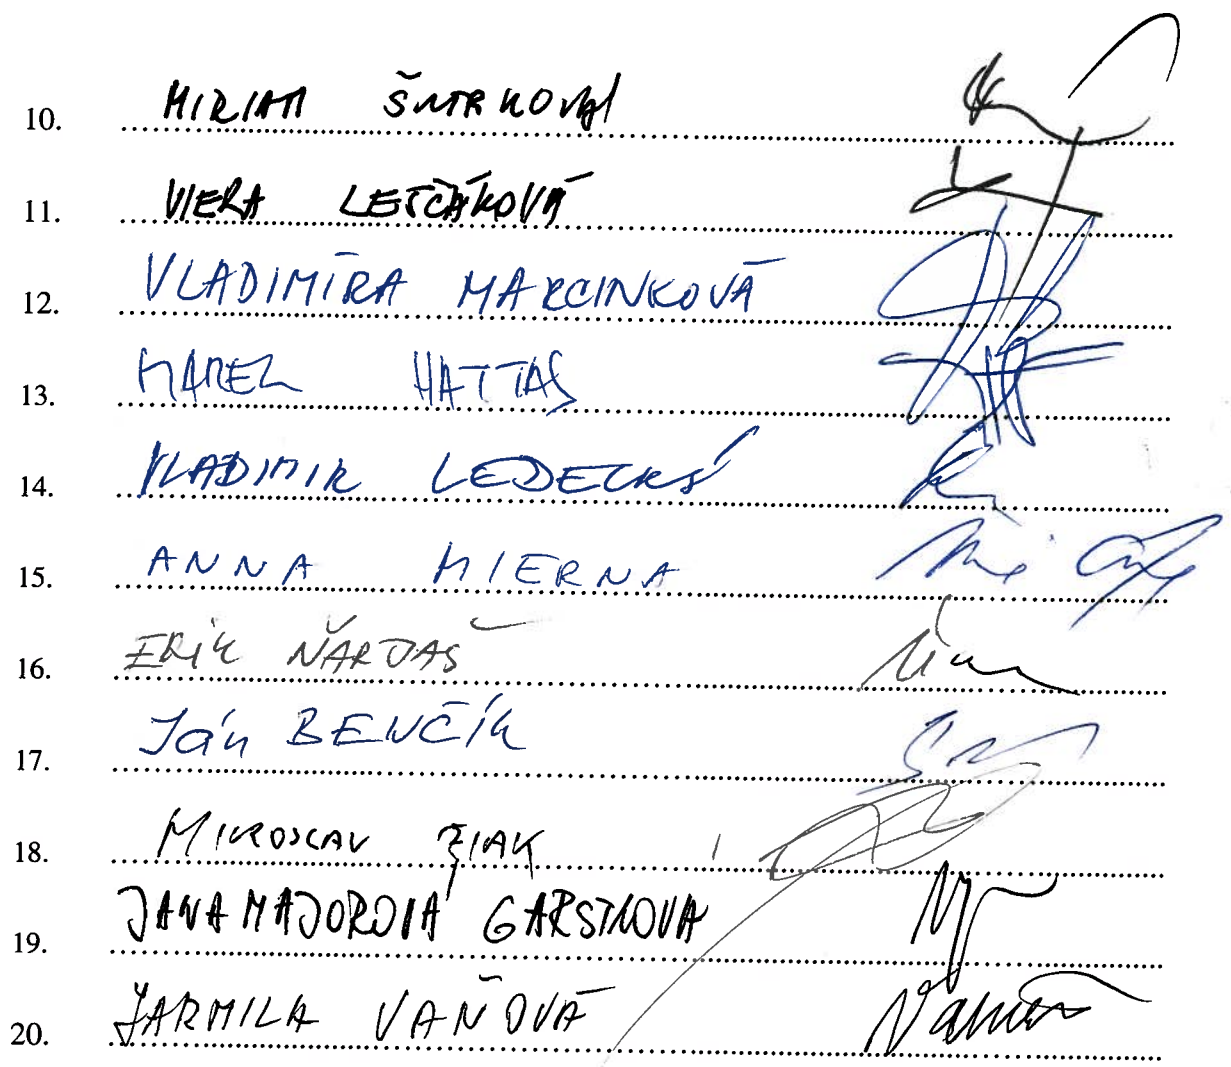 10. MIRIAM ŠMTRKOVÁ
11. VIERA LEŠČÁKOVÁ
12. VLADIMÍRA MARCINKOVÁ
13. KAREL HATTAS
14. VLADIMIR LEDECKÝ
15. ANNA MIERNA
16. ERIK ŇARJAŠ
17. Ján BENČÍK
18. MIROSLAV ŽIAK
19. JANA MAJOROVÁ GARSTKOVA
20. JARMILA VAŇOVÁ